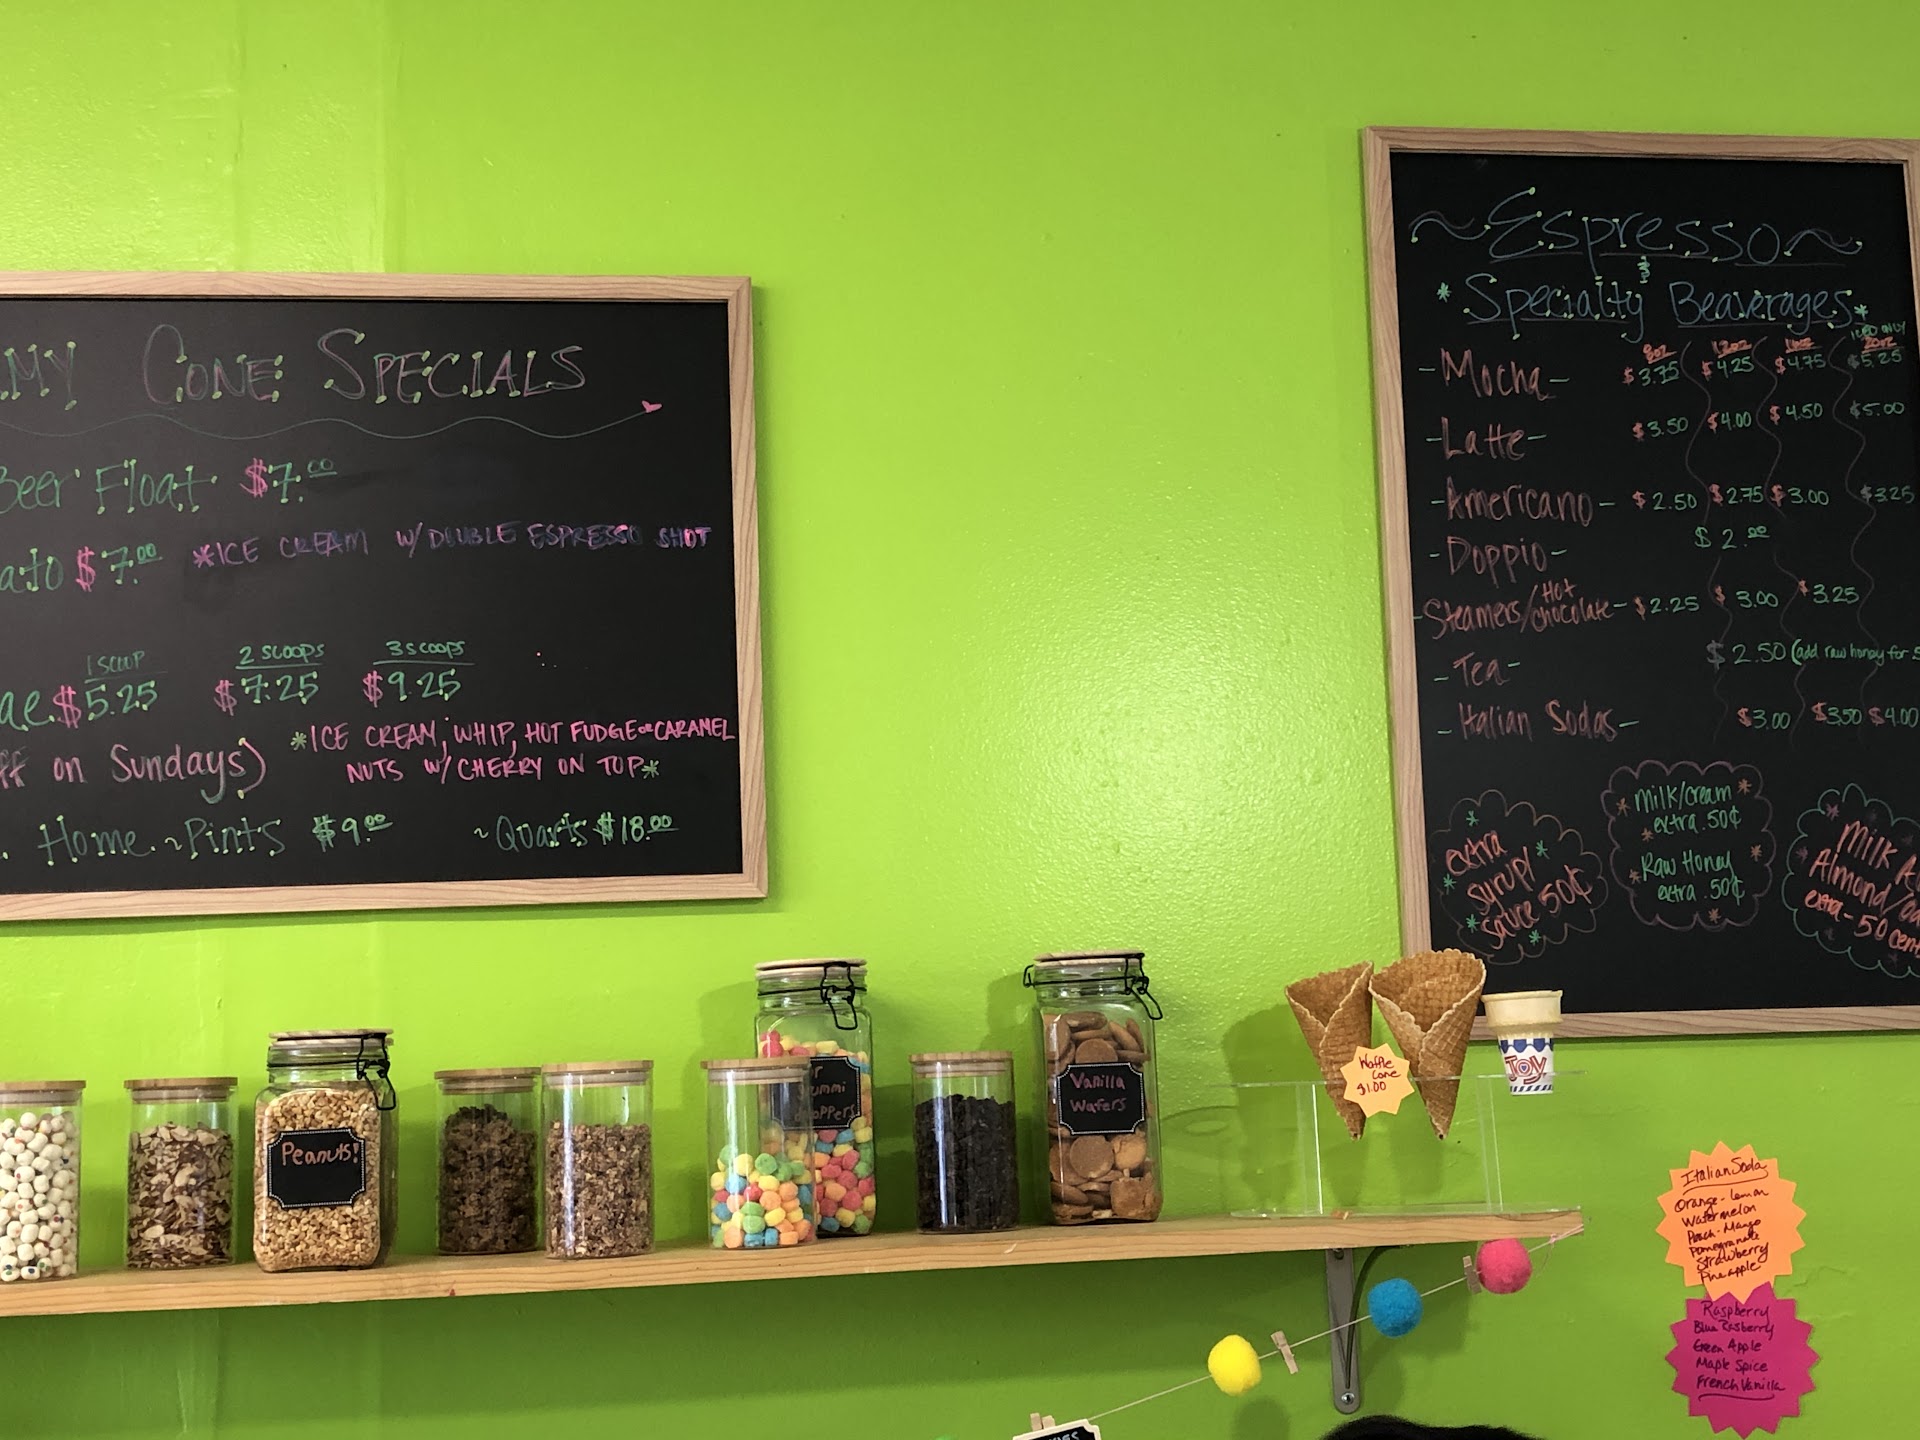 MY CONE SPECIALS
Beer Float $7.00
ato $7.00 *ICE CREAM W/DOUBLE ESPRESSO SHOT
1 SCOOP 2 SCOOPS 3 SCOOPS
ae $5.25 $7.25 $9.25
ff on Sundays) *ICE CREAM, WHIP, HOT FUDGE or CARAMEL
NUTS W/ CHERRY ON TOP*
Home ~Pints $9.00 ~Quarts $18.00
~Espresso~
&
*Specialty Beaverages*
ICED ONLY
8oz 12oz 16oz 20oz
-Mocha- $3.75 $4.25 $4.75 $5.25
-Latte- $3.50 $4.00 $4.50 $5.00
-Americano- $2.50 $2.75 $3.00 $3.25
-Doppio- $2.00
-Steamers/Hot chocolate- $2.25 $3.00 $3.25
-Tea- $2.50 (add raw honey for .5
-Italian Sodas- $3.00 $3.50 $4.00
extra
syrup/
sauce 50¢
Milk/cream
extra .50¢
Raw Honey
extra .50¢
Milk A
Almond/oa
extra-50 cent
Peanuts!
ummi
oppers
Vanilla
Wafers
Waffle
Cone
$1.00
JOY
Italian Soda
Orange-Lemon
Watermelon
Peach-Mango
Pomegranate
Strawberry
Pineapple
Raspberry
Blue Rasberry
Green Apple
Maple Spice
French Vanilla